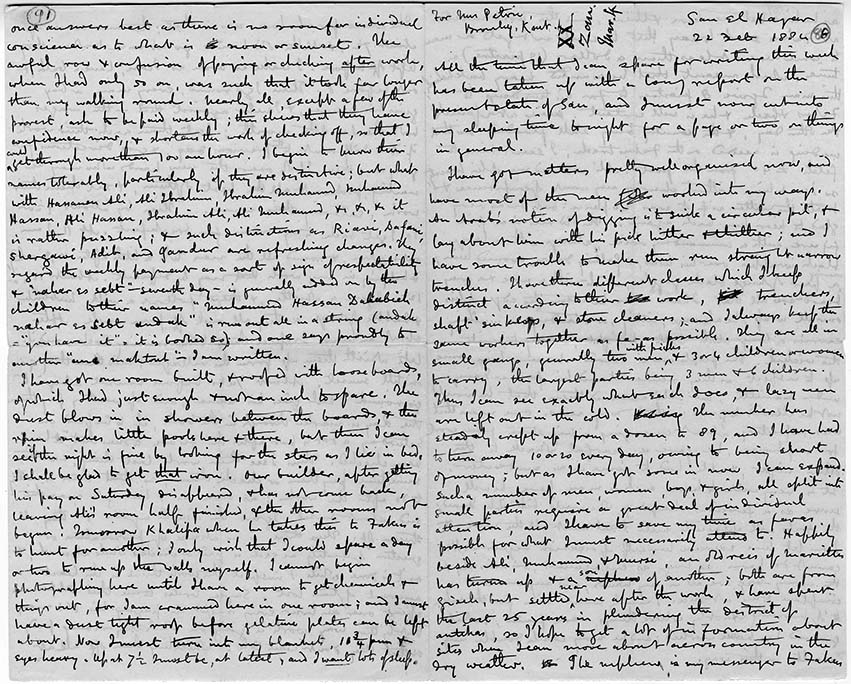 91
once answers best as there is no room for individual
conscience as to what is noon or sunset. The
awful row & confusion of paying or checking after work,
when I had only 50 on, was such that it took far longer
than my walking round. Nearly all, except a few of the
poorest ask to be paid weekly; this shews that they have
confidence now, & shortens the work of checking off, so that I
can get through more than 70 an hour. I begin to know their
names tolerably, particularly if they are distinctive; but what
with Hassanen Ali, Ali Ibrahim, Ibrahim Muhamed, Muhamed
Hassan, Ali Hasan, Ibrahim Ali, Ali Muhammed, &c, &c, &c it
is rather puzzling; & such distinctions as Basta, Dafani,
Shergawi, Adib, and Gandur are refreshing changes. They
regard the weekly payment as a sort of sign of respectability
& "nahar es sebt" - seventh day - is generally added on by the
children to their names "Muhamed Hassan Dababieh
nahar es sebt andak" is run out all in a string (andak
= "you have it", it is booked so) and one says proudly to
another "ana maktub" = I am written.
I have got one room built, & roofed with loose boards,
of which I had just enough & not an inch to spare. The
dust blows in in showers between the boards, & the
rain makes little pools here & there, but then I can
see if the night is fine by looking for the stars as I lie in bed.
I shall be glad to get that won. Our builder, after getting
his pay on Saturday disappeared, & has not come back,
leaving Ali's room half finished, & the other rooms not
begun. Tomorrow Khalifa when he takes this to Fakus is
to hunt for another; I only wish that I could spare a day
or two to run up the walls myself. I cannot begin
photographing here until I have a room to get chemicals &
things out, for I am crammed here in one room; and I must
have a dust tight roof before gelatine plates can be left
about. Now I must turn into my blanket, 10¾ pm &
eyes heavy. Up at 7½ I must be, at latest, and I want lots of sleep.
For Mrs Petrie,
Bromley, Kent.
XX
San El Hager
22 Feb 1884
86
All the time that I can spare for writing this week
has been taken up with a long report on the
present state of San, and I must now cut into
my sleeping time tonight for a page or two on things
in general.
I have got matters pretty well organised now, and
have most of the men worked into my ways.
An Arab's notion of digging is to sink a circular pit, &
lay about him with his pick hither & thither; and I
have some trouble to make them run straight narrow
trenches. I have three different classes which I keep
distinct according to their work, trenchers,
shaft sinkers, & stone cleaners; and I always keep the
same workers together as far as possible. They are all in
small gangs, generally two men with picks, & 3 or 4 children or women
to carry, the largest parties being 3 men & 6 children.
Thus I can see exactly what each does, & lazy men
are left out in the cold. The number has
steadily crept up from a dozen to 89, and I have had
to turn away 10 or 20 every day, owing to being short
of money; but as I have got some in now I can expand.
Such a number of men, women, boys, & girls, all split into
small parties require a great deal of individual
attention, and I have to save my time as far as
possible for what I must necessarily attend to. Happily
beside Ali, Muhamed, & Mursi, an old reis of Mariette's
has turned up & a son of another; both are from
Gizeh, but settled here after the work, & have spent
the last 25 years in plundering the district of
antikas, so I hope to get a lot of information about
sites when I can move about across country in the
dry weather. The nephew is my messenger to Fakus